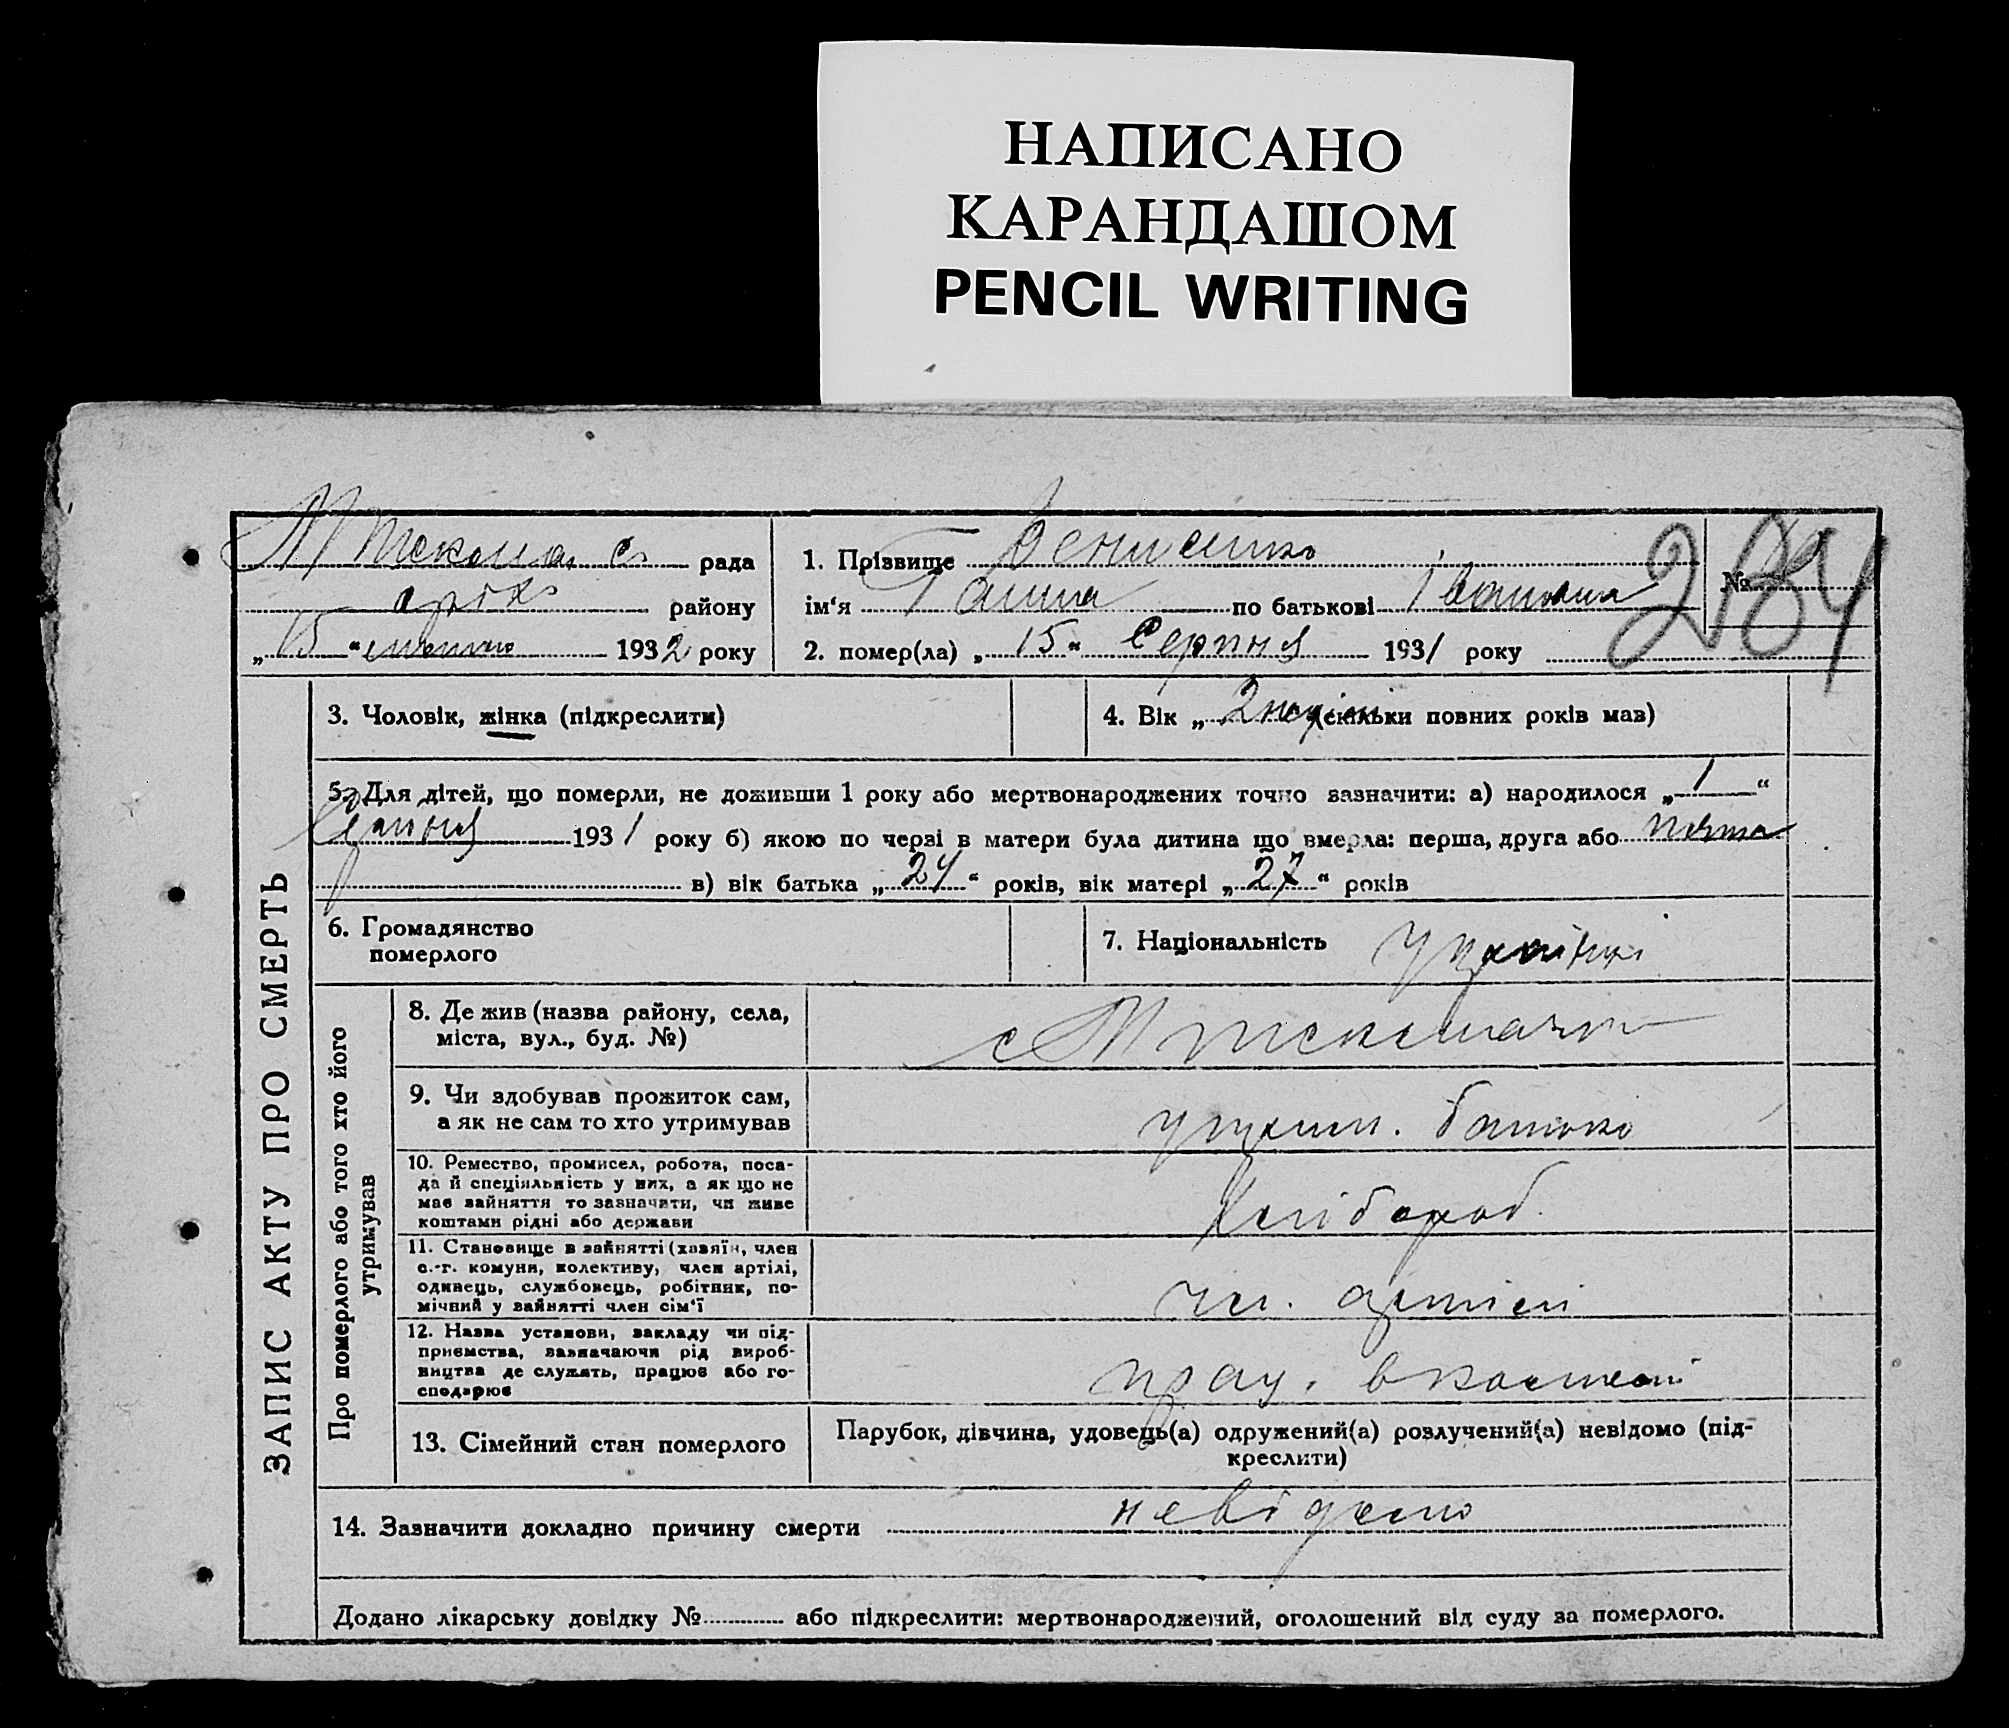 НАПИСАНО
КАРАНДАШОМ
PENCIL WRITING
рада
району
„15“ 1932 року
1. Прізвище Денисенко
ім‘я Ганна по батькові Іванівна
№
284
2. помер(ла) „15“ Серпня 1931 року
ЗАПИС АКТУ ПРО СМЕРТЬ
3. Чоловік, жінка (підкреслити)
4. Вік „2 неділі (скільки повних років мав)
5. Для дітей, що померли, не доживши 1 року або мертвонароджених точно зазначити: а) народилося „1“
Серпня 1931 року б) якою по черзі в матери була дитина що вмерла: перша, друга або
в) вік батька „24“ років, вік матері „27“ років
6. Громадянство
померлого
7. Національність
Про померлого або того хто його
утримував
8. Де жив (назва району, села,
міста, вул., буд. №)
9. Чи здобував прожиток сам,
а як не сам то хто утримував
утрим. батько
10. Ремество, промисел, робота, поса-
да й спеціяльність у них, а як що не
має зайняття то зазначити, чи живе
коштами рідні або держави
Хлібороб.
11. Становище в зайнятті (хазяїн, член
с.-г. комуни, колективу, член артілі,
одинець, службовець, робітник, по-
мічний у зайнятті член сім‘ї
чл. артілі
12. Назва установи, закладу чи під-
приємства, зазначаючи рід вироб-
ництва де служить, працює або го-
сподарює
прац. в
13. Сімейний стан померлого
Парубок, дівчина, удовець(а) одружений(а) розлучений(а) невідомо (під-
креслити)
14. Зазначити докладно причину смерти невідомо
Додано лікарську довідку № або підкреслити: мертвонароджений, оголошений від суду за померлого.